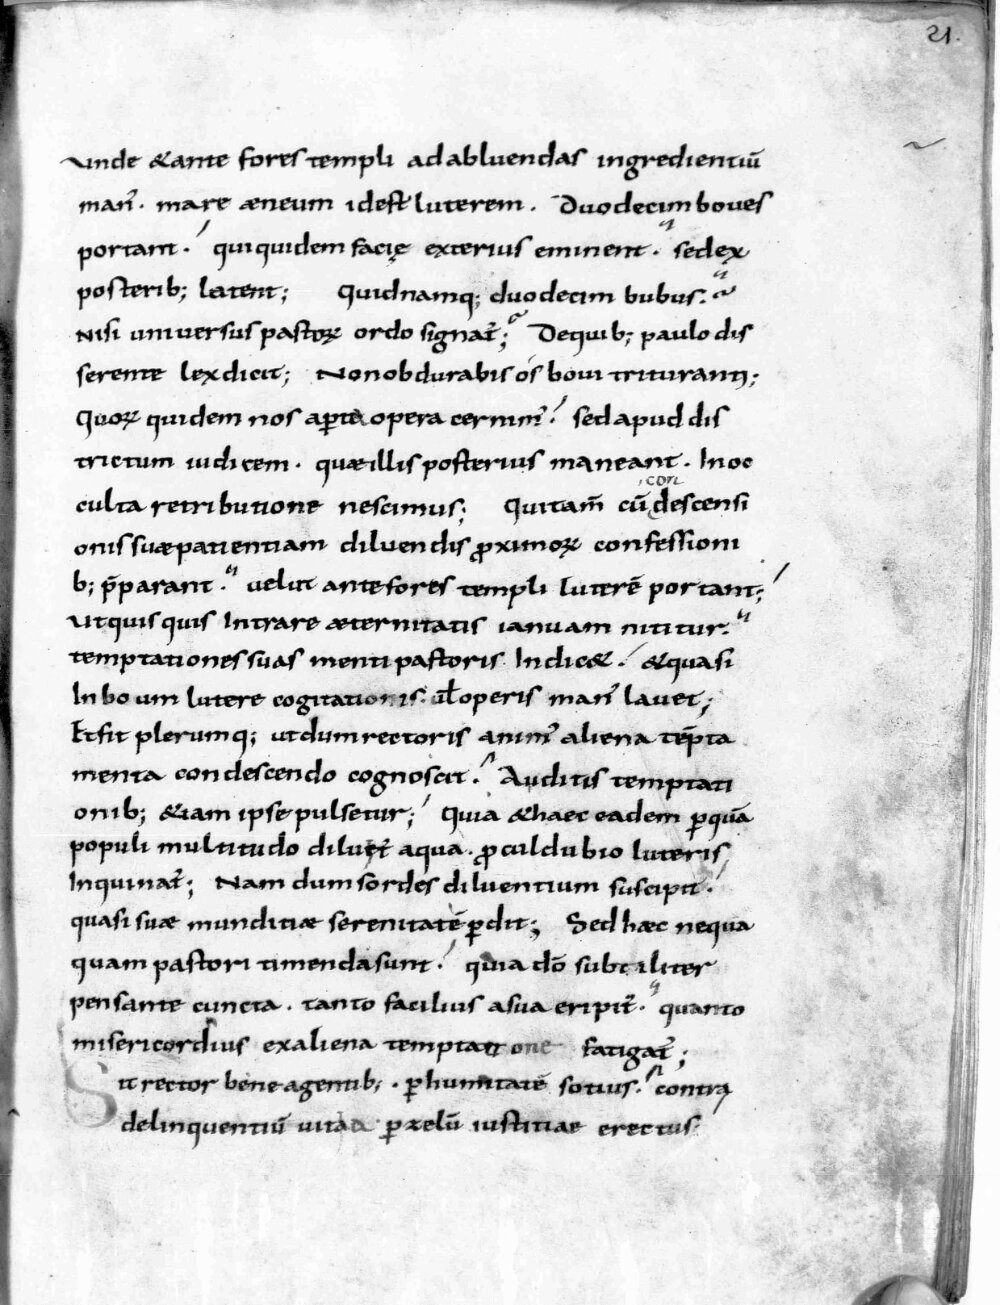 21.
Unde &ante fores templi ad abluendas ingredientiū
man̄. mare æneum id est luterem. Duodecim boves
portant. qui quidem facię exterius eminent. sed ex
posterib; latent; Quid namq; duodecim bubus.
Nisi universus pastorꝝ ordo signat̄; De quib; paulo dis
serente lex dicit; Non obdurabis os bovi trituranti;
Quorꝝ quidem nos aꝑta opera cernim̄. sed apud dis
trictum iudicem. quæ illis posterius maneant. In oc
culta retributione nescimus; Qui tam̄ cū con descensi
onis suæ patientiam diluendis ꝓximorꝝ confessioni
b; p̄parant. velut ante fores templi luterē portant;
Ut quisquis Intrare æternitatis ianuam nititur.
temptationes suas menti pastoris Indic&. &quasi
In boum lutere cogitationis. ul̄ operis man̄ lavet;
Et fit plerumq; ut dum rectoris anim̄ aliena tēpta
menta condescendo cognoscit. Auditis temptati
onib; &iam ipse pulsetur; Quia &haec eadem ꝑ quā
populi multitudo diluet̄ aqua. ꝓculdubio luteris
Inquinat̄; Nam dum sordes diluentium suscipit.
quasi suæ munditiæ serenitatē ꝑdit; Sed hæc nequa
quam pastori timenda sunt. quia dō subtiliter
pensante cuncta. tanto facilius a sua eripit̄. quanto
misericordius ex aliena temptatione fatigat̄;
Sit rector bene agentib;. ꝑ humilitatē sotius. contra
delinquentiū vitia ꝑ zelū iustitiae erectus.